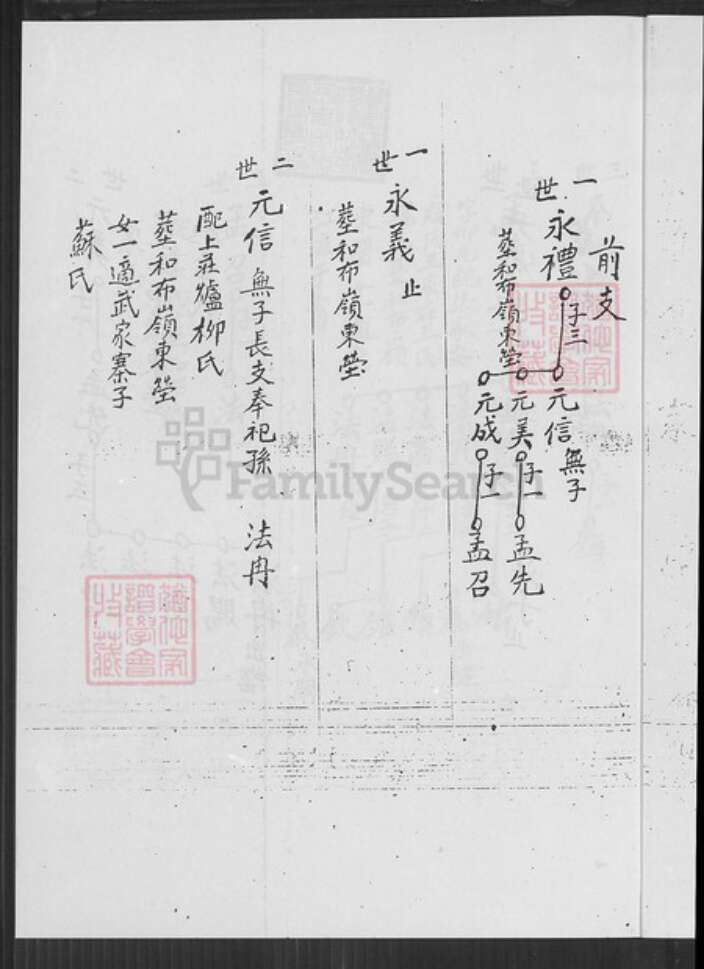 前支
一世 永禮 子三 元信 無子
元美 子一 孟先
元成 子一 孟召
葬和布嶺東塋
一世 永義 止
葬和布嶺東塋
二世 元信 無子長支奉祀孫 法冉
配上莊爐柳氏
葬和布嶺東塋
女一適武家寨子
蘇氏
FamilySearch